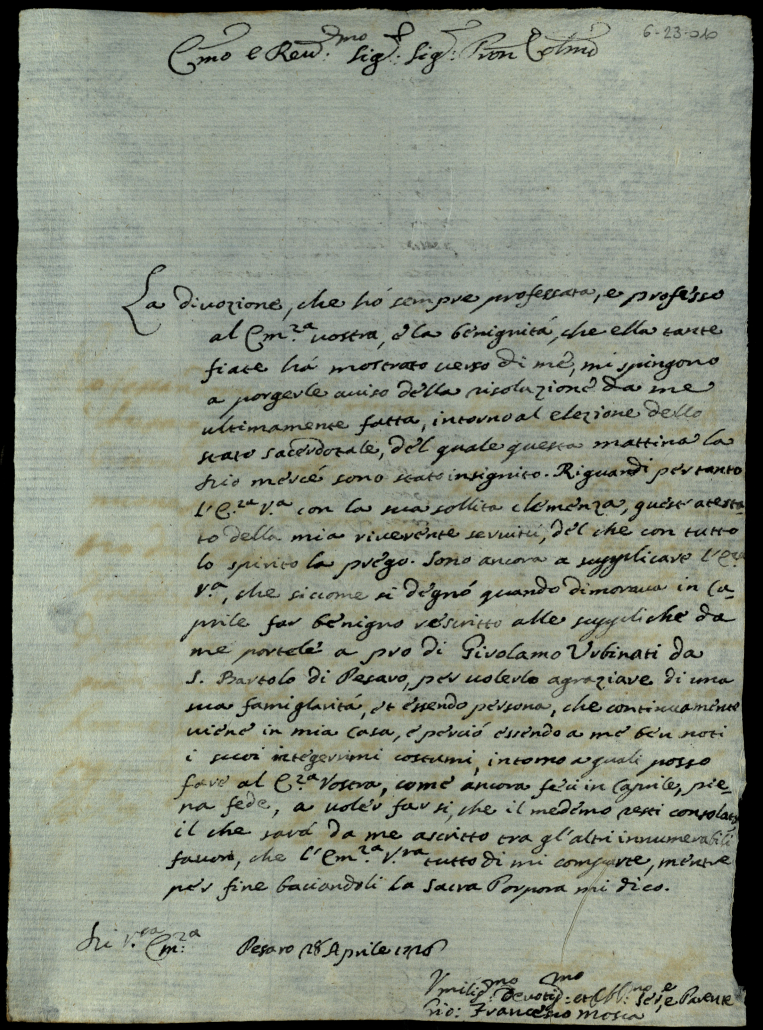 6-23-010
Emo e Reu:mo Sig: Sig: Pron Colmo
La diuozione, che hó sempre professata, e professo
al Em:za vostra, e la benignitá, che ella tante
fiate há mostrato uerso di mé, mi spingono
a porgerle auiso della risoluzione da me
ultimamente fatta, intorno al elezione dello
stato sacerdotale, del quale questa mattina la
Dio mercé sono stato insignito. Riguardi pertanto
l'E.za V.a con la sua sollita clemenza, quest'atesta
to della mia riuerente seruitú, del che con tutto
lo spirito la prego. Sono ancora a supplicare l'E.za
V.a, che siccome si degnó quando dimoraua in Ca=
prile far benigno rescritto alle suppliche da
me portele a pro di Girolamo Vrbinati da
S. Bartolo di Pesaro, per uolerlo agraziare di una
sua famigliaritá, et essendo persona, che continuamente
uiene in mia casa, e perció essendo a me ben noti
i suoi integerrimi costumi, intorno a quali posso
fare al E.za Vostra, come ancora feci in Caprile, pie=
na fede, a uoler far si, che il medemo resti consolato,
il che sará da me ascritto tra gl'altri innumerabili
fauori, che l'Em:za V.ra tutto di mi comparte, mentre
per fine baciandoli la Sacra Porpora mi dico.
Di V.ra Em:za Pesaro 28 Aprile 1726
Vmilis:mo Deuotis:mo et Obl:mo Ser:e, e Parente
Gio: Francesco Mosca